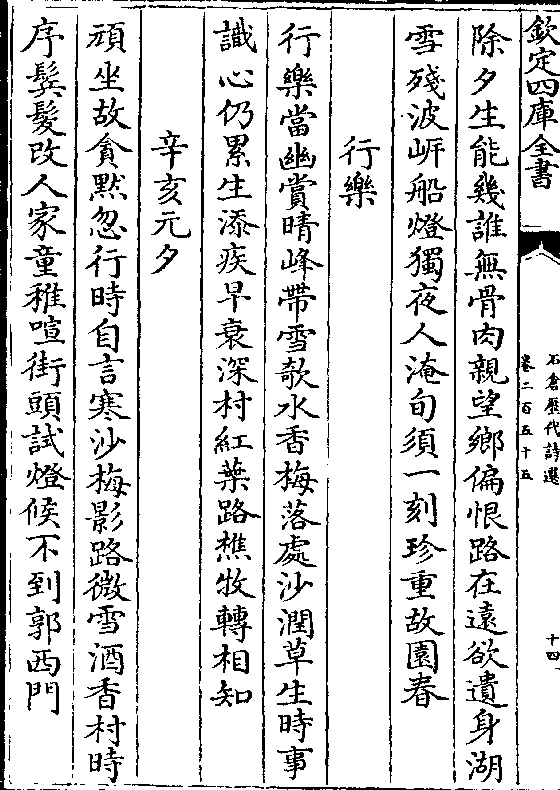 欽定四庫全書
石倉歷代詩選
卷二百五十五
十四
除夕生能幾誰無骨肉親望鄉偏恨路在遠欲遺身湖
雪殘波岼船燈獨夜人淹旬須一刻珍重故園春
行樂
行樂當幽賞晴峰帶雪欹水香梅落處沙潤草生時事
識心仍累生添疾早衰深村紅葉路樵牧轉相知
辛亥元夕
頑坐故貪黙忽行時自言寒沙梅影路微雪酒香村時
序鬓髪改人家童稚喧街頭試燈候不到郭西門